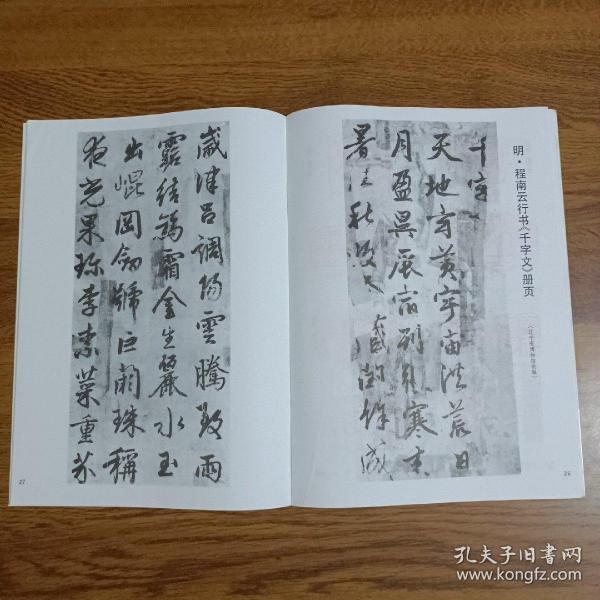 明·程南云行书《千字文》册页
千字文
天地玄黄宇宙洪荒日
月盈昃辰宿列張寒来
暑往秋收冬藏閏餘成
26
歲律呂調陽雲騰致雨
露結為霜金生麗水玉
出崐岡劍號巨闕珠稱
夜光果珍李柰菜重芥
27
孔夫子旧书网
www.kongfz.com